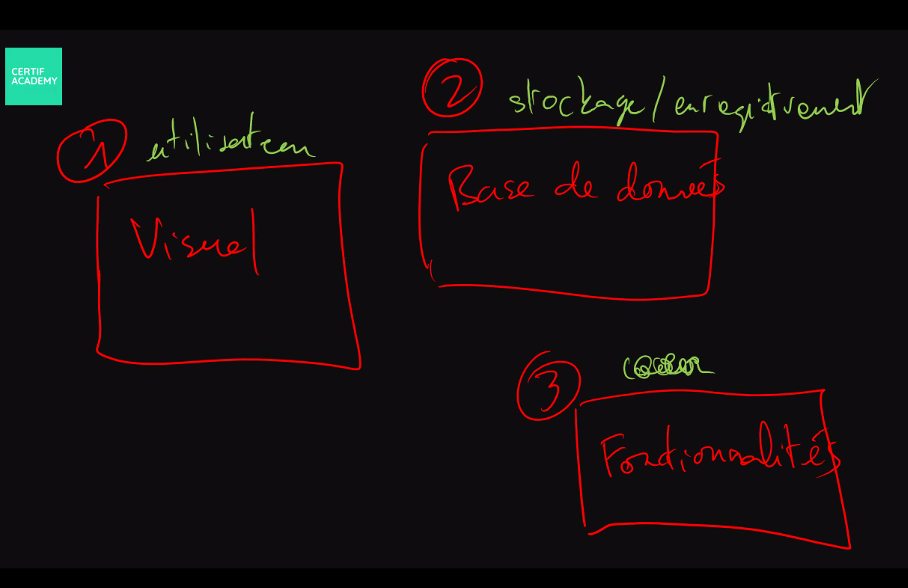 CERTIF
ACADEMY
1
utilisateur
Visuel
2
stockage/enregistrement
Base de données
3
Fonctionnalités